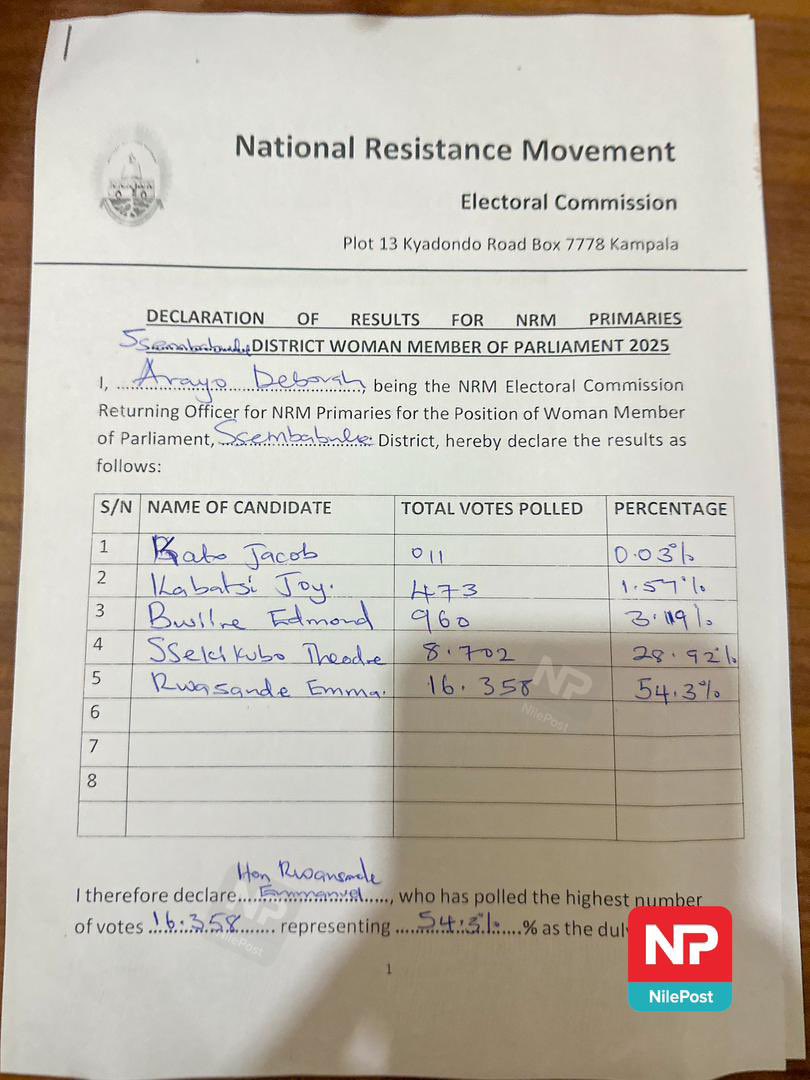 National Resistance Movement
Electoral Commission
Plot 13 Kyadondo Road Box 7778 Kampala
DECLARATION OF RESULTS FOR NRM PRIMARIES
DISTRICT WOMAN MEMBER OF PARLIAMENT 2025
I, ....Arayo Deborah...., being the NRM Electoral Commission
Returning Officer for NRM Primaries for the Position of Woman Member
of Parliament, Ssembabule District, hereby declare the results as
follows:
S/N NAME OF CANDIDATE TOTAL VOTES POLLED PERCENTAGE
1 Kato Jacob 011 0.03%
2 Kabatsi Joy. 473 1.57%
3 Edmond 960 3.19%
4 SSekikubo Theodre 8.702 28.92%
5 Rwasande Emma. 16.358 54.3%
6
7
8
Hon Rwansande
I therefore declare....Emmanuel....., who has polled the highest number
of votes 16.358....... representing .....54.3%....% as the duly
1
NP
NilePost
NP
NilePost
NP
NilePost